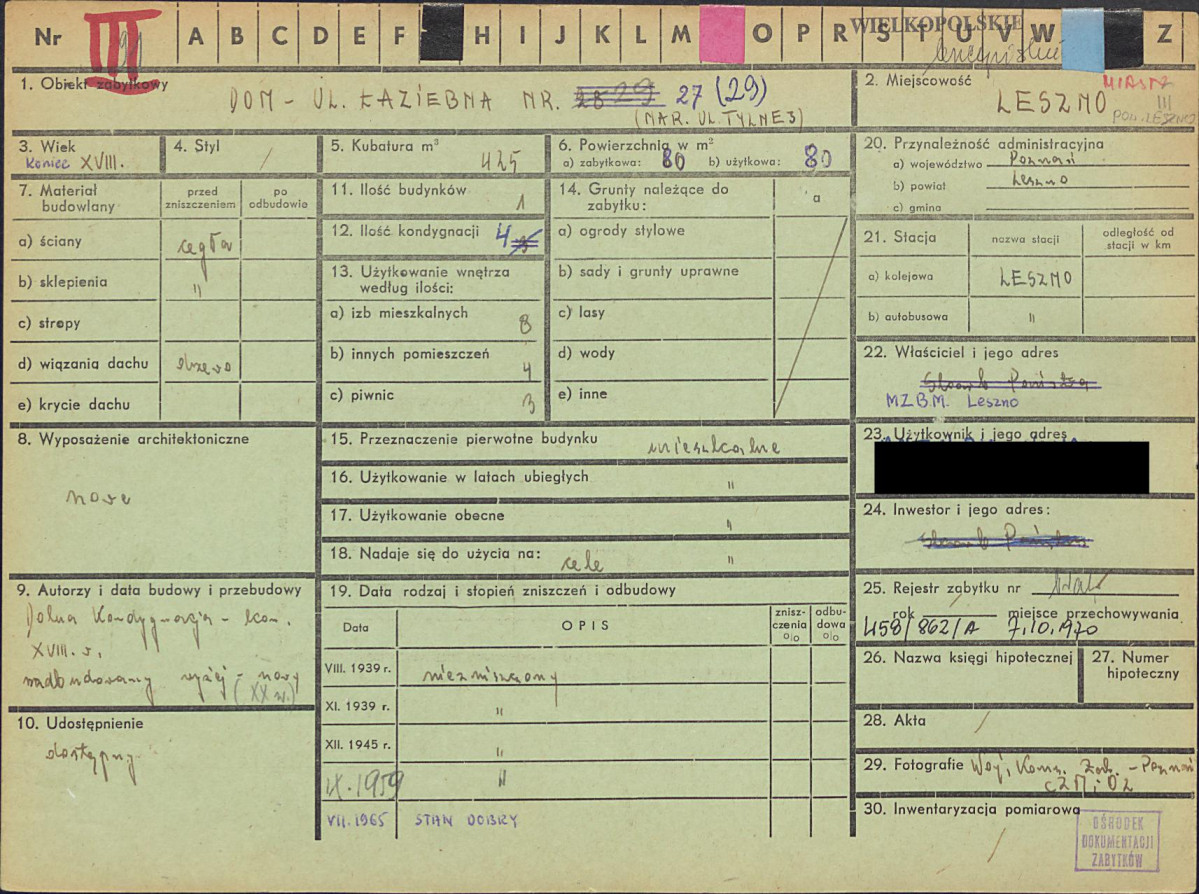 Nr III A B C D E F H I J K L M O P R S T U V W Z
WIELKOPOLSKIE
1. Obiekt zabytkowy
DOM - UL. ŁAZIEBNA NR. 27 (29)
(NAR. UL. TYLNEJ)
2. Miejscowość
MIASTO
LESZNO
III
POW. LESZNO
3. Wiek
koniec XVIII.
4. Styl
/
5. Kubatura m³
425
6. Powierzchnia w m²
a) zabytkowa: 80 b) użytkowa: 80
20. Przynależność administracyjna
a) województwo Poznań
b) powiat Leszno
c) gmina
7. Materiał budowlany
przed zniszczeniem
po odbudowie
a) ściany cegła
b) sklepienia "
c) stropy
d) wiązania dachu drzewo
e) krycie dachu
11. Ilość budynków 1
12. Ilość kondygnacji 4
13. Użytkowanie wnętrza według ilości:
a) izb mieszkalnych 8
b) innych pomieszczeń 4
c) piwnic 3
14. Grunty należące do zabytku:
a
a) ogrody stylowe
b) sady i grunty uprawne
c) lasy
d) wody
e) inne
21. Stacja
nazwa stacji
odległość od stacji w km
a) kolejowa LESZNO
b) autobusowa "
22. Właściciel i jego adres
Skarb Państwa
MZBM. Leszno
23. Użytkownik i jego adres
24. Inwestor i jego adres:
Skarb Państwa
8. Wyposażenie architektoniczne
nowe
15. Przeznaczenie pierwotne budynku mieszkalne
16. Użytkowanie w latach ubiegłych "
17. Użytkowanie obecne "
18. Nadaje się do użycia na: cele "
9. Autorzy i data budowy i przebudowy
Dolna Kondygnacja - kon.
XVIII. w.
nadbudowany wyżej - nowy
(XX w.)
10. Udostępnienie
dostępny
19. Data rodzaj i stopień zniszczeń i odbudowy
Data
OPIS
znisz-czenia %
odbu-dowa %
VIII. 1939 r. niezniszczony
XI. 1939 r. "
XII. 1945 r. "
IX. 1959 "
VII. 1965 STAN DOBRY
25. Rejestr zabytku nr
rok miejsce przechowywania
458/862/A 7.10.1970
26. Nazwa księgi hipotecznej
27. Numer hipoteczny
28. Akta /
29. Fotografie Woj. Kons. Zab. - Poznań
CZM i OZ
30. Inwentaryzacja pomiarowa
/
OŚRODEK
DOKUMENTACJI
ZABYTKÓW